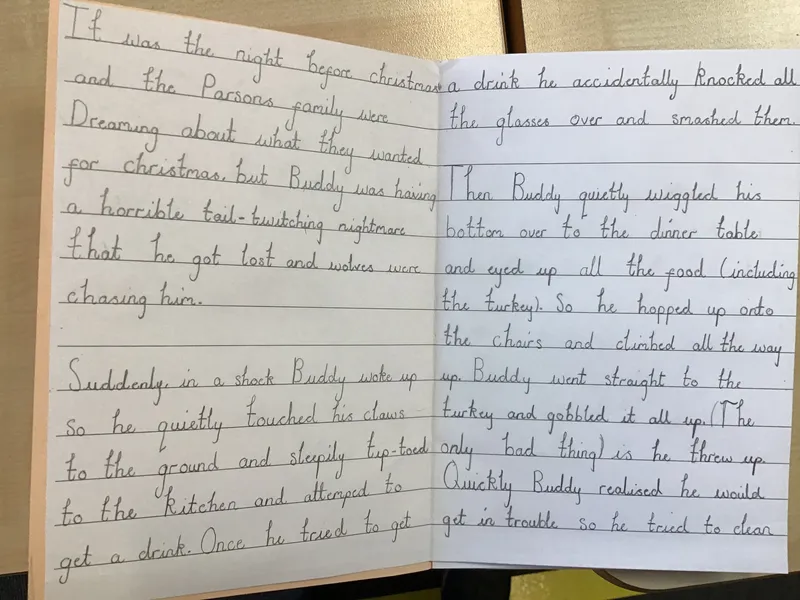 It was the night before christmas
and the Parsons family were
Dreaming about what they wanted
for christmas, but Buddy was having
a horrible tail-twitching nightmare
that he got lost and wolves were
chasing him.
Suddenly, in a shock Buddy woke up
so he quietly touched his claws
to the ground and sleepily tip-toed
to the kitchen and attemped to
get a drink. Once he tried to get
a drink he accidentally knocked all
the glasses over and smashed them.
Then Buddy quietly wiggled his
bottom over to the dinner table
and eyed up all the food (including
the turkey). So he hopped up onto
the chairs and climbed all the way
up. Buddy went straight to the
turkey and gobbled it all up. (The
only bad thing) is he threw up.
Quickly Buddy realised he would
get in trouble so he tried to clean